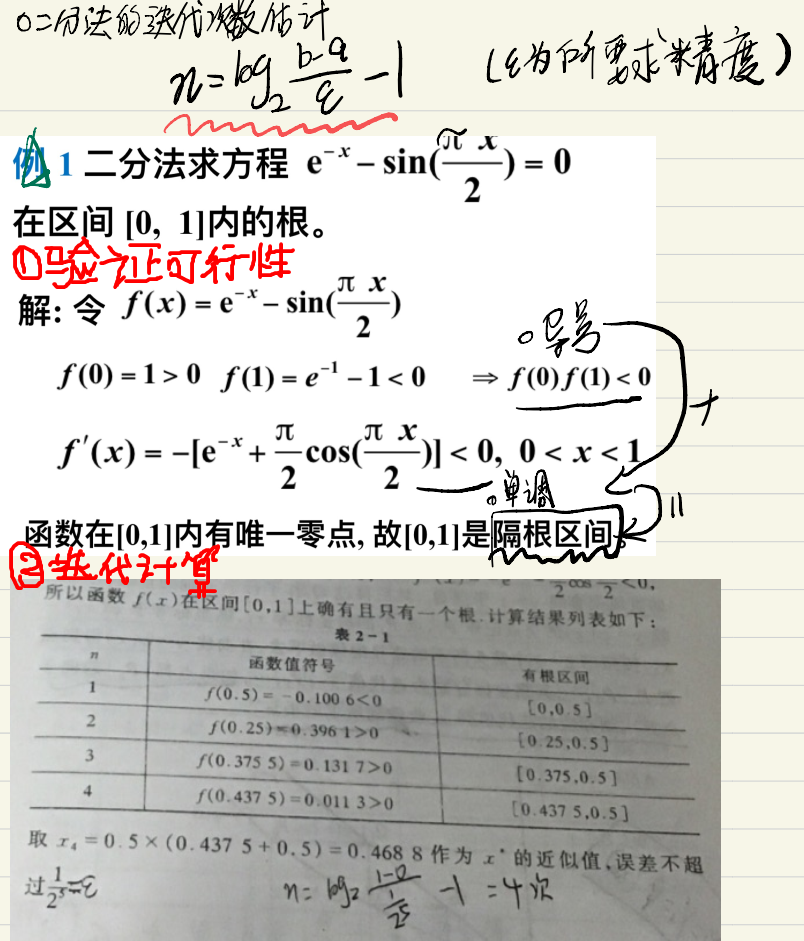 ○二分法的迭代次数估计
n=log₂ (b-a)/ε -1 (ε为所要求精度)
例 1 二分法求方程 e⁻ˣ − sin(π x/2) = 0
在区间 [0, 1]内的根。
①验证可行性
解: 令 f(x) = e⁻ˣ − sin(π x/2)
○异号
f(0) = 1 > 0 f(1) = e⁻¹ − 1 < 0 ⇒ f(0)f(1) < 0
+
f′(x) = −[e⁻ˣ + π/2 cos(π x/2)] < 0, 0 < x < 1
○单调
函数在[0,1]内有唯一零点, 故[0,1]是隔根区间。
②迭代计算
所以函数 f(x)在区间[0,1]上确有且只有一个根.计算结果列表如下:
表 2-1
n 函数值符号 有根区间
1 f(0.5)=-0.100 6<0 [0,0.5]
2 f(0.25)=0.396 1>0 [0.25,0.5]
3 f(0.375 5)=0.131 7>0 [0.375,0.5]
4 f(0.437 5)=0.011 3>0 [0.437 5,0.5]
取 x₄=0.5×(0.437 5+0.5)=0.468 8 作为 x* 的近似值,误差不超
过 1/2⁵=ε n=log₂ (1-0)/(1/2⁵) -1 =4次